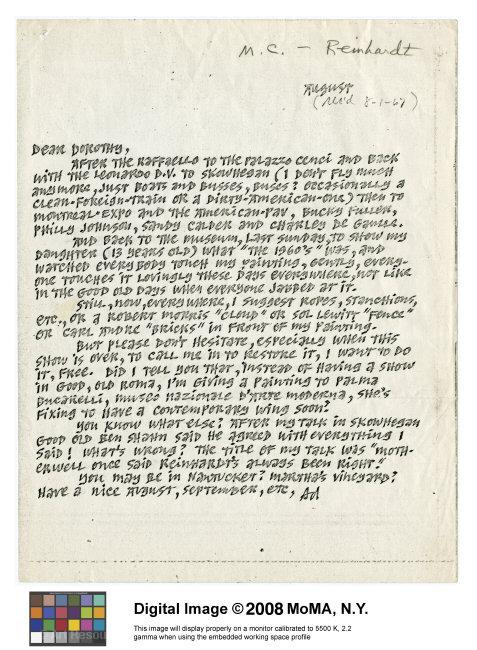 M.C. – Reinhardt
AUGUST
(rec'd 8-1-67)
DEAR DOROTHY,
AFTER THE RAFFAELLO TO THE PALAZZO CENCI AND BACK
WITH THE LEONARDO D.V. TO SKOWHEGAN (I DON'T FLY MUCH
ANYMORE, JUST BOATS AND BUSSES, BUSES? OCCASIONALLY A
CLEAN-FOREIGN-TRAIN OR A DIRTY-AMERICAN-ONE) THEN TO
MONTREAL-EXPO AND THE AMERICAN-PAV, BUCKY FULLER,
PHILLY JOHNSON, SANDY CALDER AND CHARLEY DE GAULLE.
AND BACK TO THE MUSEUM, LAST SUNDAY, TO SHOW MY
DAUGHTER (13 YEARS OLD) WHAT "THE 1960'S" WAS, AND
WATCHED EVERYBODY TOUCH MY PAINTING, GENTLY, EVERY-
ONE TOUCHES IT LOVINGLY THESE DAYS EVERYWHERE, NOT LIKE
IN THE GOOD OLD DAYS WHEN EVERYONE JABBED AT IT.
STILL, NOW, EVERYWHERE, I SUGGEST ROPES, STANCHIONS,
ETC., OR A ROBERT MORRIS "CLOUD" OR SOL LEWITT "FENCE"
OR CARL ANDRE "BRICKS" IN FRONT OF MY PAINTING.
BUT PLEASE DON'T HESITATE, ESPECIALLY WHEN THIS
SHOW IS OVER, TO CALL ME IN TO RESTORE IT, I WANT TO DO
IT, FREE. DID I TELL YOU THAT, INSTEAD OF HAVING A SHOW
IN GOOD, OLD ROMA, I'M GIVING A PAINTING TO PALMA
BUCARELLI, MUSEO NAZIONALE D'ARTE MODERNA, SHE'S
FIXING TO HAVE A CONTEMPORARY WING SOON?
YOU KNOW WHAT ELSE? AFTER MY TALK IN SKOWHEGAN
GOOD OLD BEN SHAHN SAID HE AGREED WITH EVERYTHING I
SAID! WHAT'S WRONG? THE TITLE OF MY TALK WAS "MOTH-
ERWELL ONCE SAID REINHARDT'S ALWAYS BEEN RIGHT."
YOU MAY BE IN NANTUCKET? MARTHA'S VINEYARD?
HAVE A NICE AUGUST, SEPTEMBER, ETC, Ad
Digital Image © 2008 MoMA, N.Y.
This image will display properly on a monitor calibrated to 5500 K, 2.2
gamma when using the embedded working space profile